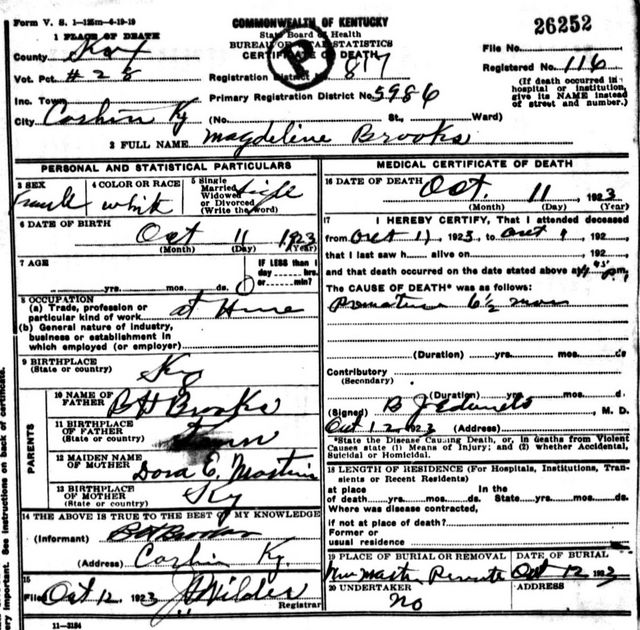 Form V. S. 1—125m—4-19-19
COMMONWEALTH OF KENTUCKY
State Board of Health
BUREAU OF VITAL STATISTICS
CERTIFICATE OF DEATH
26252
File No.
Registered No. 116
(If death occurred in a hospital or institution, give its NAME instead of street and number.)
1 PLACE OF DEATH
County Knox
Vot. Pct. #28
Registration District No. 817
Inc. Town
Primary Registration District No. 5986
City Corbin Ky (No. St., Ward)
2 FULL NAME Magdeline Brooks
PERSONAL AND STATISTICAL PARTICULARS
3 SEX
female
4 COLOR OR RACE
white
5 Single
Married
Widowed
or Divorced
(Write the word)
single
6 DATE OF BIRTH
Oct 11 1923
(Month) (Day) (Year)
7 AGE
yrs. mos. ds.
IF LESS than 1
day hrs.
or min?
0
8 OCCUPATION
(a) Trade, profession or
particular kind of work at Home
(b) General nature of industry,
business or establishment in
which employed (or employer)
9 BIRTHPLACE
(State or country)
Ky
PARENTS
10 NAME OF
FATHER
BH Brooks
11 BIRTHPLACE
OF FATHER
(State or country)
Tenn
12 MAIDEN NAME
OF MOTHER
Dora E.
13 BIRTHPLACE
OF MOTHER
(State or country)
Ky
14 THE ABOVE IS TRUE TO THE BEST OF MY KNOWLEDGE
(Informant) BH Brooks
(Address) Corbin Ky.
15
Filed Oct 12, 1923 Wilder
Registrar
11—3184
MEDICAL CERTIFICATE OF DEATH
16 DATE OF DEATH
Oct. 11 1923
(Month) (Day) (Year)
17 I HEREBY CERTIFY, That I attended deceased
from Oct 11, 1923, to Oct 192
that I last saw h alive on 192
and that death occurred on the date stated above at P.m.
The CAUSE OF DEATH* was as follows:
Premature 6½ mos
(Duration) yrs. mos. ds.
Contributory
(Secondary)
(Duration) yrs. mos. d.
(Signed) B J Edwards, M. D.
Oct 12 1923 (Address)
*State the Disease Causing Death, or, in deaths from Violent
Causes state (1) Means of Injury; and (2) whether Accidental,
Suicidal or Homicidal.
18 LENGTH OF RESIDENCE (For Hospitals, Institutions, Transients or Recent Residents)
at place In the
of death yrs. mos. ds. State yrs. mos. ds.
Where was disease contracted,
if not at place of death?
Former or
usual residence
19 PLACE OF BURIAL OR REMOVAL
DATE OF BURIAL
Oct 12 1923
20 UNDERTAKER
No
ADDRESS
very important. See instructions on back of certificate.